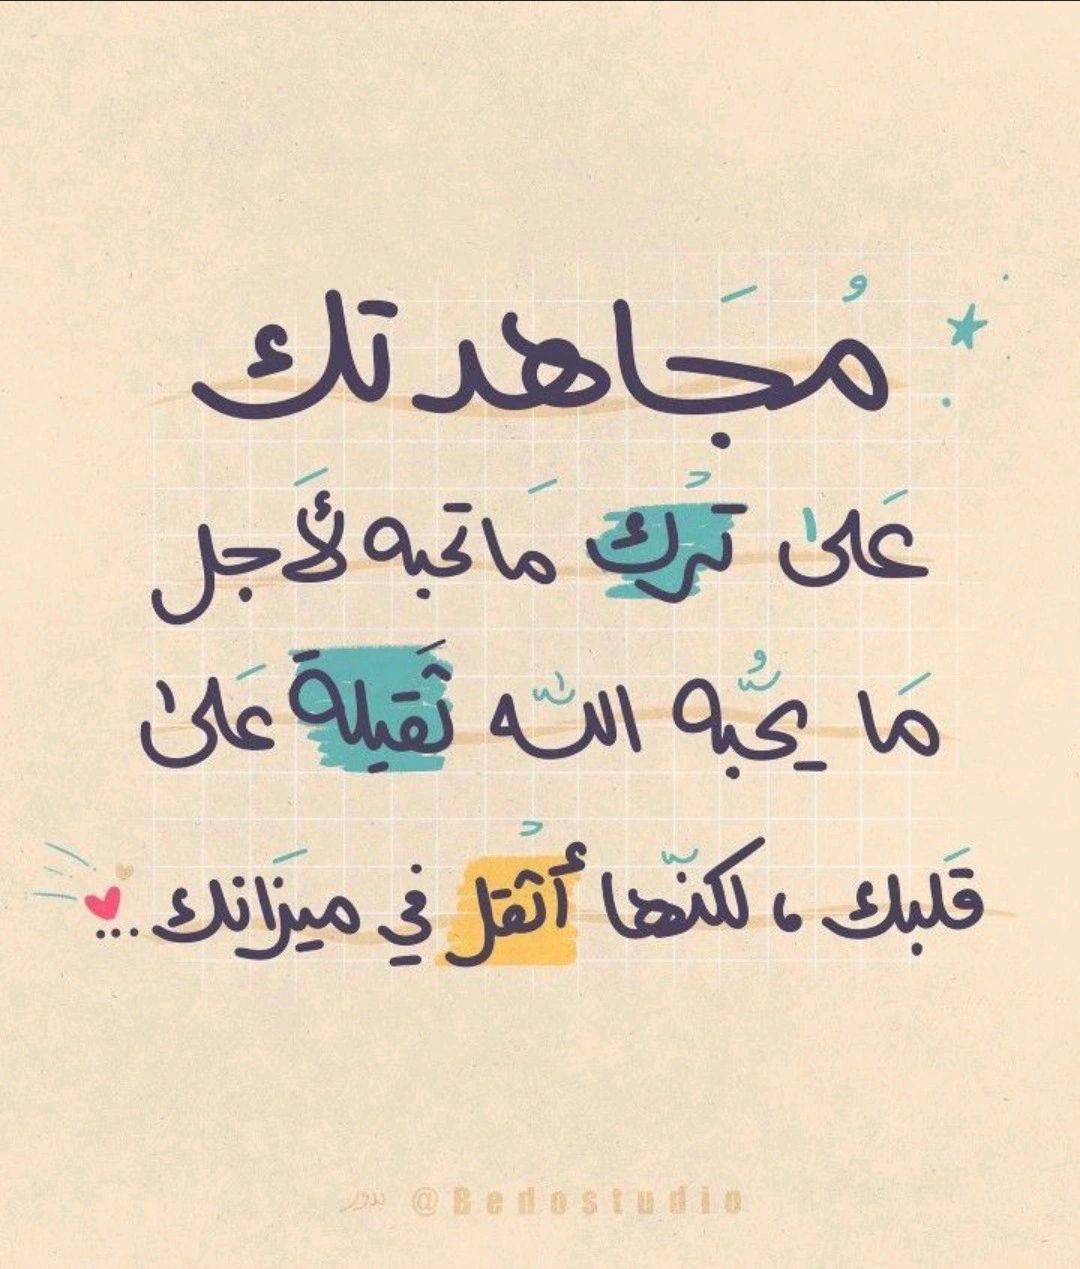 مُجَاهدتك
عَلىٰ تركْ مَا تحبه لأَجل
مَا يحبُّه اللّٰه ثَقيلة عَلىٰ
قَلبك ، لكنّها أثْقل في ميزَانك ...
بدور @Bedostudio